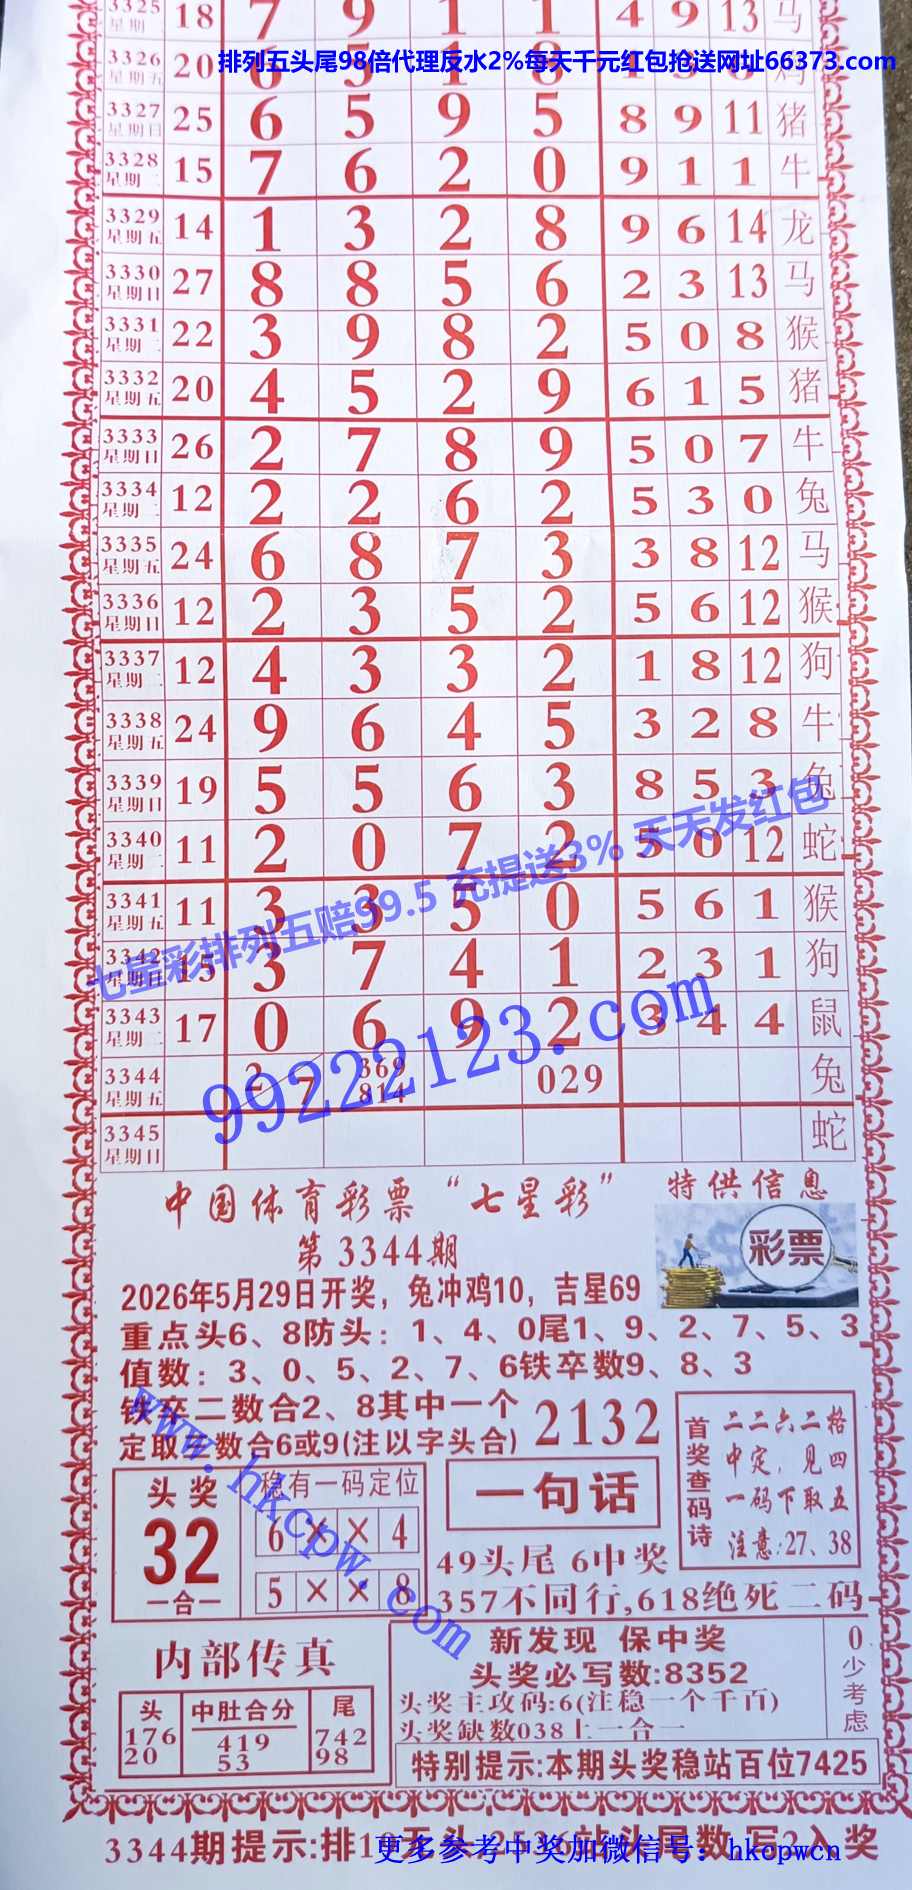 3325 星期二 18 7 9 1 1 4 9 13 马
排列五头尾98倍代理反水2%每天千元红包抢送网址66373.com
3326 星期五 20
3327 星期日 25 6 5 9 5 8 9 11 猪
3328 星期二 15 7 6 2 0 9 1 1 牛
3329 星期五 14 1 3 2 8 9 6 14 龙
3330 星期日 27 8 8 5 6 2 3 13 马
3331 星期二 22 3 9 8 2 5 0 8 猴
3332 星期五 20 4 5 2 9 6 1 5 猪
3333 星期日 26 2 7 8 9 5 0 7 牛
3334 星期二 12 2 2 6 2 5 3 0 兔
3335 星期五 24 6 8 7 3 3 8 12 马
3336 星期日 12 2 3 5 2 5 6 12 猴
3337 星期二 12 4 3 3 2 1 8 12 狗
3338 星期五 24 9 6 4 5 3 2 8 牛
3339 星期日 19 5 5 6 3 8 5 3 兔
3340 星期二 11 2 0 7 2 5 0 12 蛇
七星彩排列五赔99.5 充提送3% 天天发红包
3341 星期五 11 3 3 5 0 5 6 1 猴
3342 星期日 15 3 7 4 1 2 3 1 狗
3343 星期二 17 0 6 9 2 3 4 4 鼠
99222123.com
3344 星期五 2 7 369 814 029 兔
3345 星期日 蛇
中国体育彩票“七星彩” 特供信息
第3344期
彩票
2026年5月29日开奖，兔冲鸡10，吉星69
重点头6、8防头：1、4、0尾1、9、2、7、5、3
值数：3、0、5、2、7、6铁卒数9、8、3
铁卒二数合2、8其中一个
定取三数合6或9(注以字头合)
2132
首奖查码诗
二二六二格
中定，见四
一码下取五
注意:27、38
头奖
32
一合一
稳有一码定位
6 × × 4
5 × × 8
www.hkcpw.com
一句话
49头尾 6中奖
357不同行,618绝死二码
内部传真
头 中肚合分 尾
176 419 742
20 53 98
新发现 保中奖
头奖必写数:8352
头奖主攻码:6(注稳一个千百)
头奖缺数038上一合一
0少考虑
特别提示:本期头奖稳站百位7425
3344期提示:排1 头 2536站头尾数 写2入奖
更多参考中奖加微信号：hkcpwcn